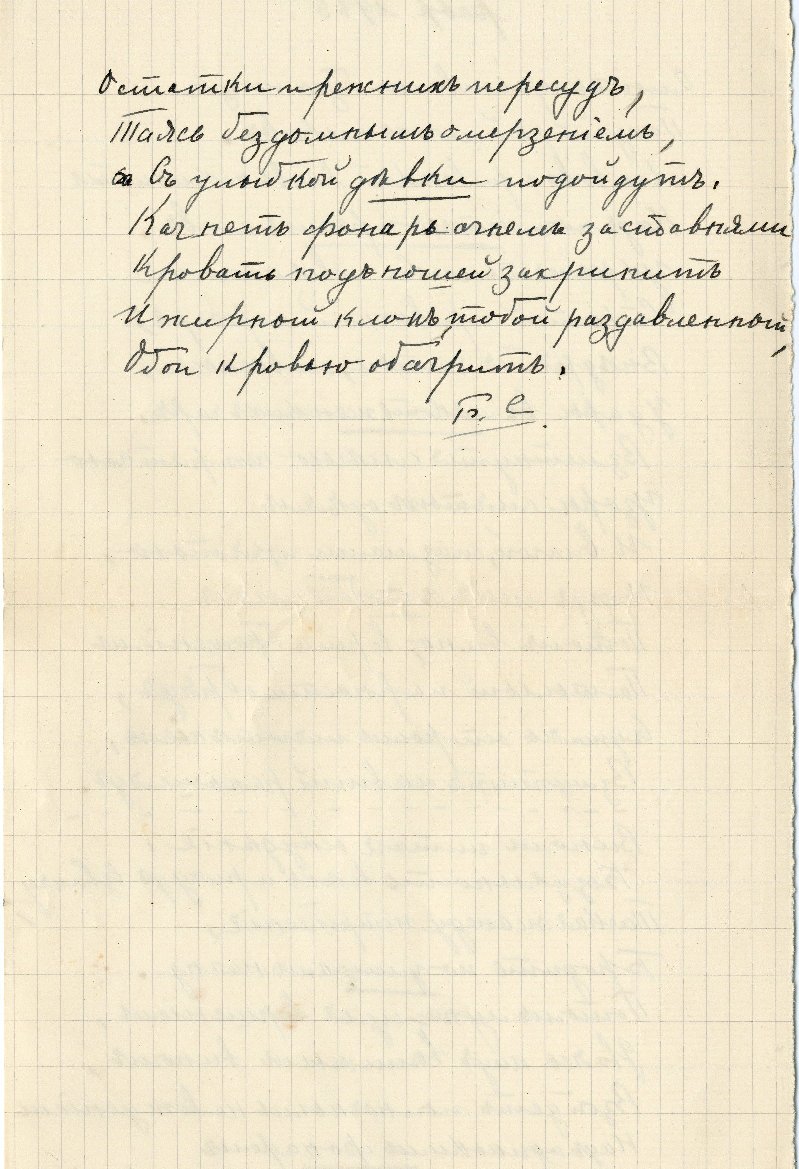 Остатки прежнихъ пересудъ,
Таясь бездомнымъ омерзеніемъ,
Съ улыбкой дѣвки подойдутъ.
Качнетъ фонарь огнемъ заставнями
Кровать подъ ношей закрипитъ
И жирной клопъ, тобой раздавленной,
Обои кровью обагритъ.
Б. С.